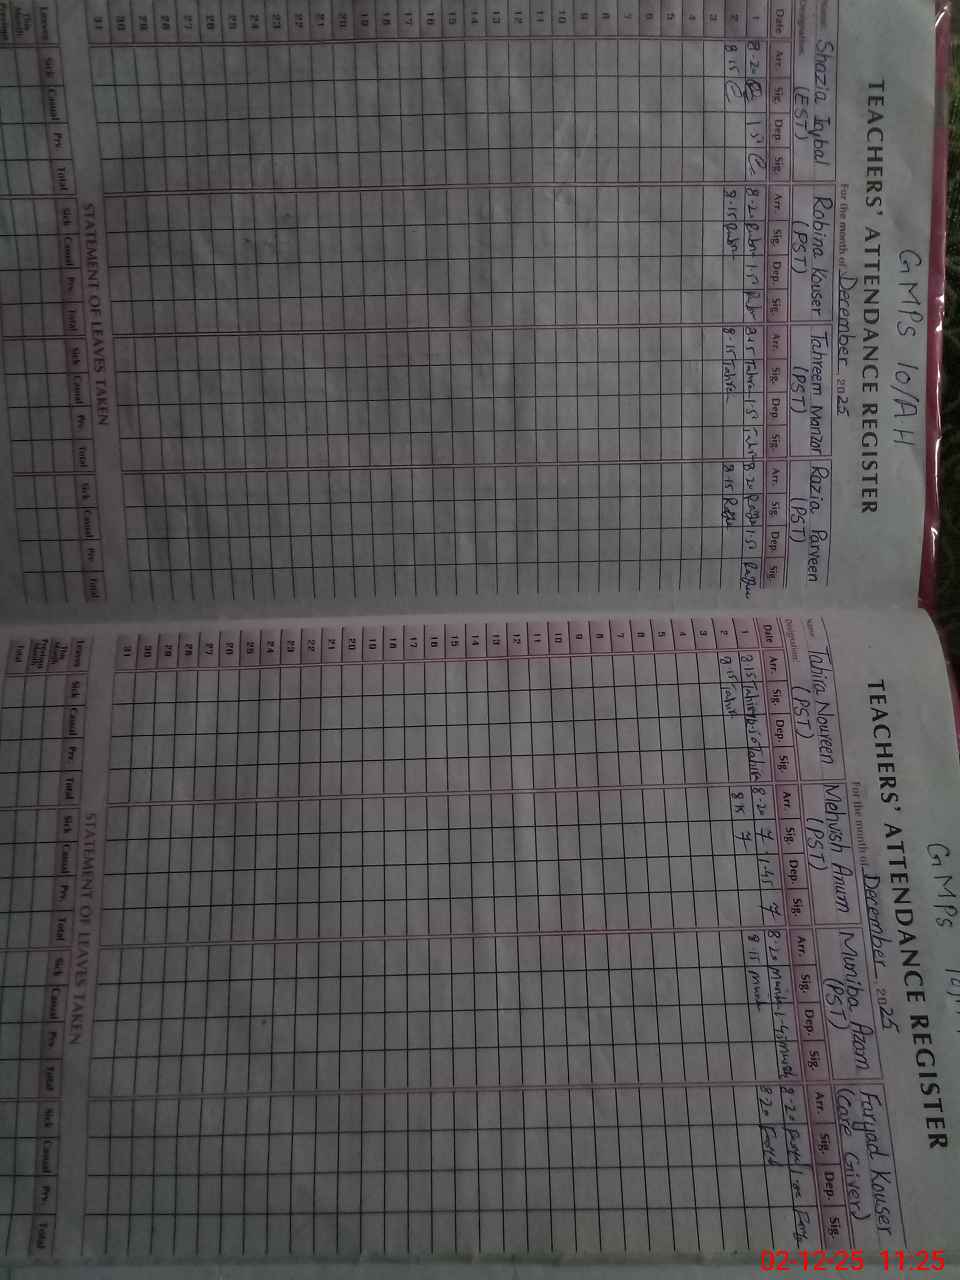 GMPS 10/A.H
TEACHERS' ATTENDANCE REGISTER
For the month of December 2025
Name Shazia Iqbal Robina Kouser Tahreem Manzor Razia Parveen
Designation (EST) (PST) (PST) (PST)
Date Arr. Sig. Dep. Sig. Arr. Sig. Dep. Sig. Arr. Sig. Dep. Sig. Arr. Sig. Dep. Sig.
1 8-20 8-20 8-20
2 8-15 8-15 8-15 8-15
3
4
5
6
7
8
9
10
11
12
13
14
15
16
17
18
19
20
21
22
23
24
25
26
27
28
29
30
31
STATEMENT OF LEAVES TAKEN
Leaves Sick Casual Prv. Total Sick Casual Prv. Total Sick Casual Prv. Total Sick Casual Prv. Total
This Month
GMPS
TEACHERS' ATTENDANCE REGISTER
For the month of December 2025
Name Tahira Noureen Mehvish Anum Muniba Azam Faryad Kouser
Designation (PST) (PST) (PST) (Care Giver)
Date Arr. Sig. Dep. Sig. Arr. Sig. Dep. Sig. Arr. Sig. Dep. Sig. Arr. Sig. Dep. Sig.
1 8-15 Tahira 8-20 1-45 8-20 8-20
2 8-15 8-15 8-15 8-20
3
4
5
6
7
8
9
10
11
12
13
14
15
16
17
18
19
20
21
22
23
24
25
26
27
28
29
30
31
STATEMENT OF LEAVES TAKEN
Leaves Sick Casual Prv. Total Sick Casual Prv. Total Sick Casual Prv. Total Sick Casual Prv. Total
This Month
Previous Month
Total
02-12-25 11:25